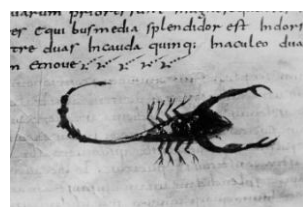 uarum priores
es Equi bus media splendidor est Indors
tre duas Incauda quinq: Inaculeo dua
m Etnoue